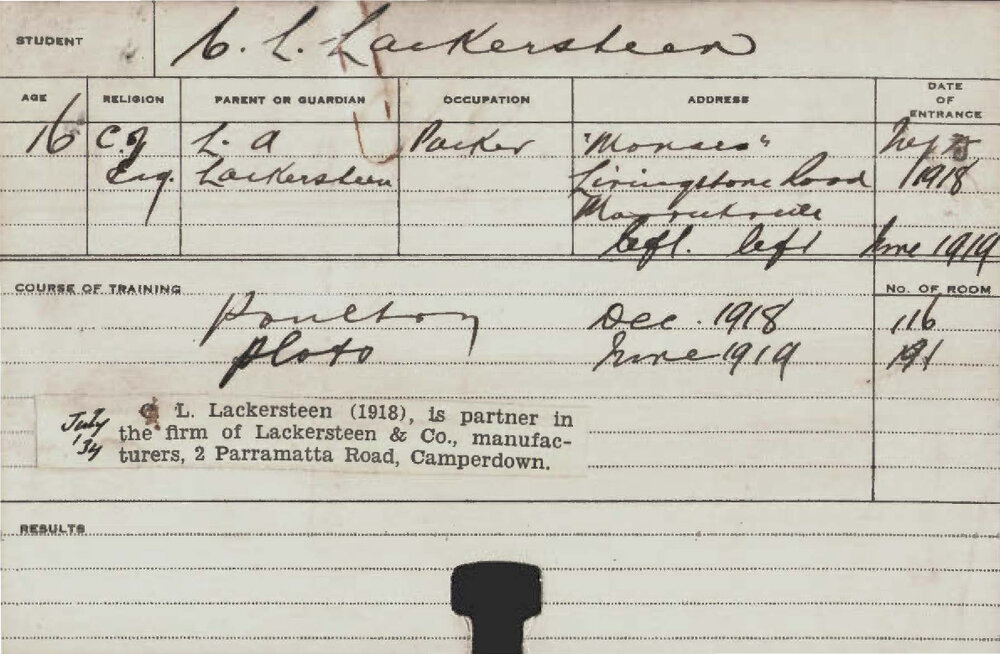 STUDENT C. L. Lackersteen
AGE RELIGION PARENT OR GUARDIAN OCCUPATION ADDRESS DATE OF ENTRANCE
16 C. of L. A Packer "Monaco"
Eng. Lackersteen Livingstone Road 1918
Marrickville
left. left June 1919
COURSE OF TRAINING No. OF ROOM
Poultry Dec. 1918 116
June 1919 191
July '34
C L. Lackersteen (1918), is partner in
the firm of Lackersteen & Co., manufac-
turers, 2 Parramatta Road, Camperdown.
RESULTS